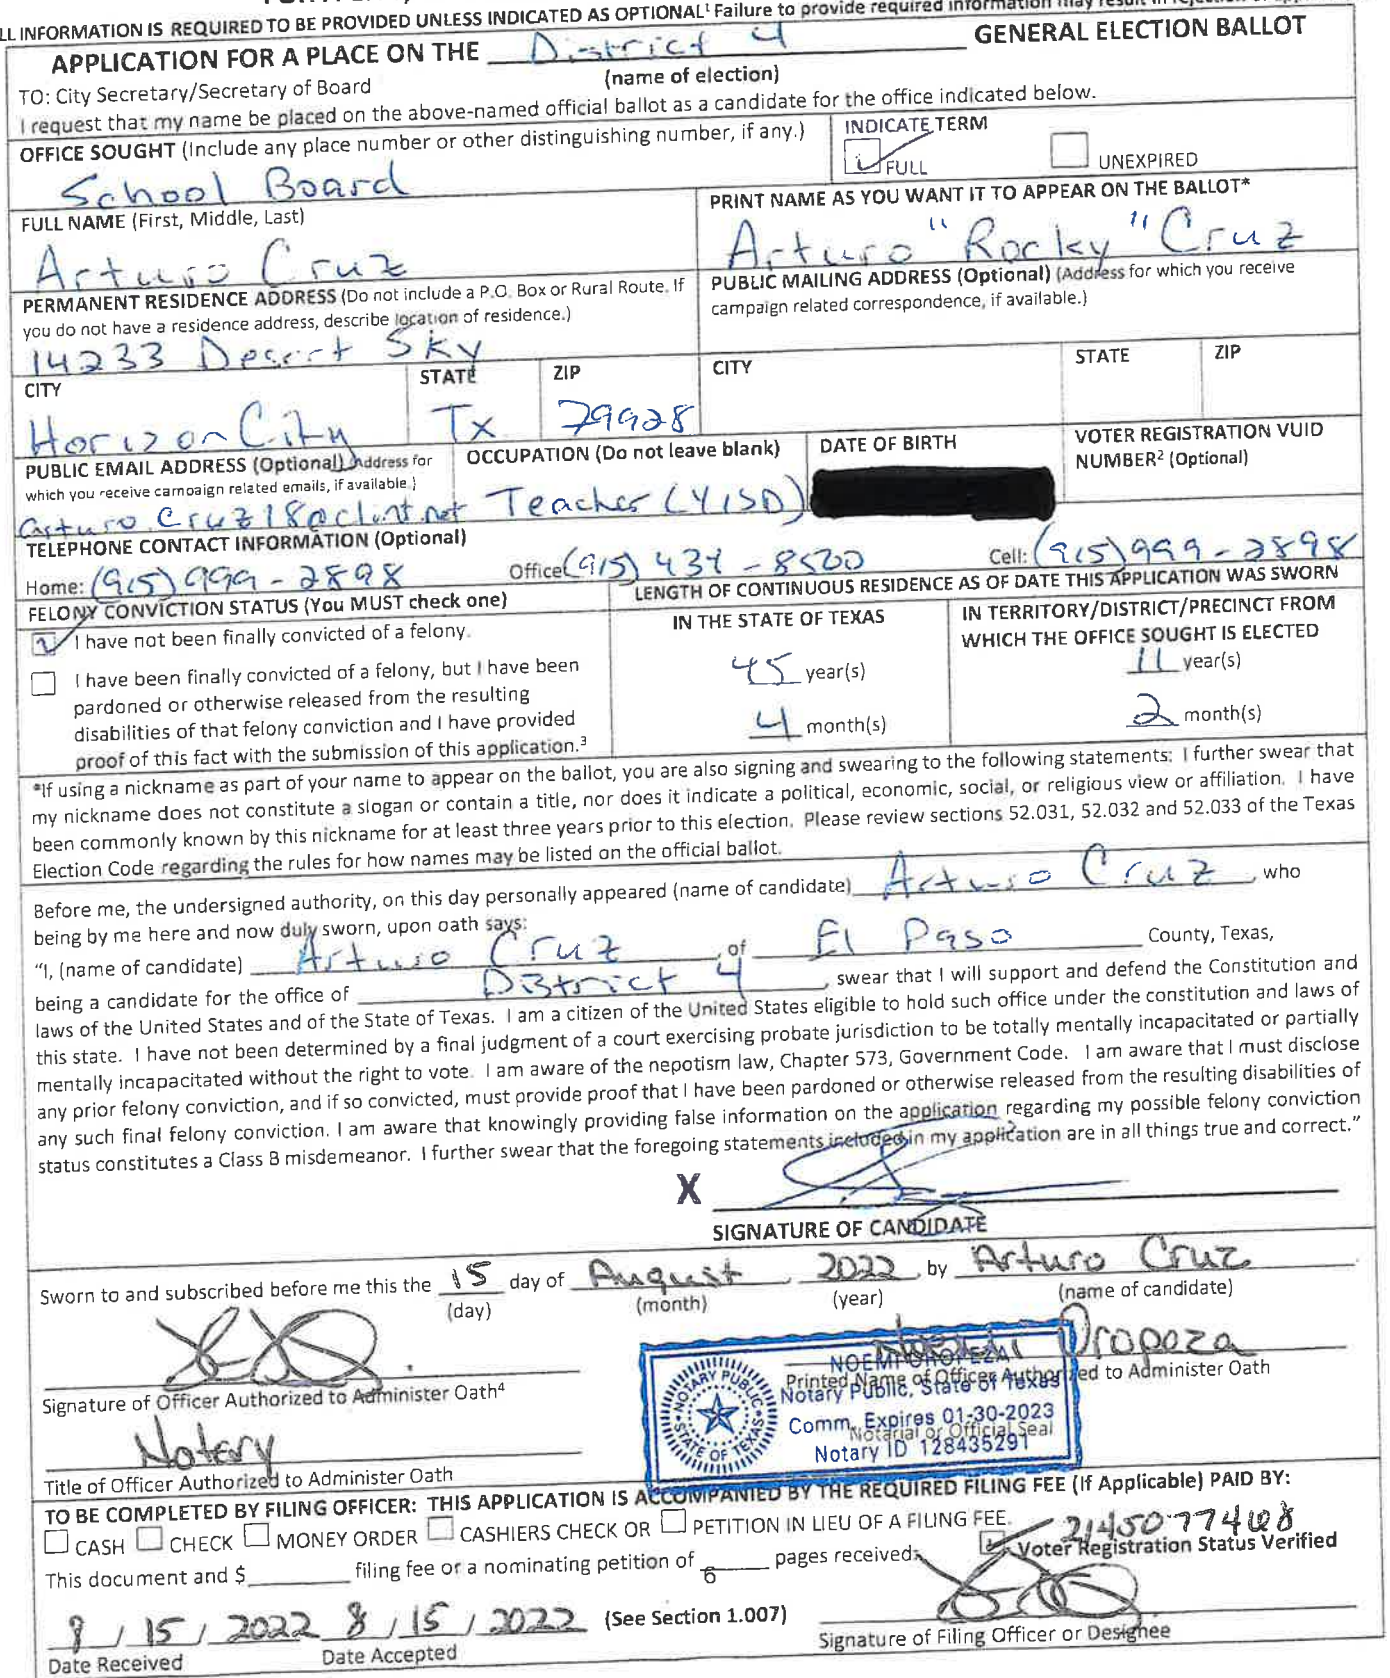 LL INFORMATION IS REQUIRED TO BE PROVIDED UNLESS INDICATED AS OPTIONAL¹ Failure to provide required information may result in rejection of
APPLICATION FOR A PLACE ON THE District 4 GENERAL ELECTION BALLOT
(name of election)
TO: City Secretary/Secretary of Board
I request that my name be placed on the above-named official ballot as a candidate for the office indicated below.
OFFICE SOUGHT (Include any place number or other distinguishing number, if any.)
School Board
INDICATE TERM
FULL
UNEXPIRED
FULL NAME (First, Middle, Last)
Arturo Cruz
PRINT NAME AS YOU WANT IT TO APPEAR ON THE BALLOT*
Arturo "Rocky" Cruz
PERMANENT RESIDENCE ADDRESS (Do not include a P.O. Box or Rural Route. If
you do not have a residence address, describe location of residence.)
14233 Desert Sky
PUBLIC MAILING ADDRESS (Optional) (Address for which you receive
campaign related correspondence, if available.)
CITY STATE ZIP
Horizon City Tx 79928
CITY STATE ZIP
PUBLIC EMAIL ADDRESS (Optional) Address for
which you receive campaign related emails, if available.)
OCCUPATION (Do not leave blank)
Teacher (YISD)
DATE OF BIRTH
VOTER REGISTRATION VUID
NUMBER² (Optional)
TELEPHONE CONTACT INFORMATION (Optional)
Home: (915) 999-2898 Office (915) 434-8500 Cell: (915) 999-2898
FELONY CONVICTION STATUS (You MUST check one)
I have not been finally convicted of a felony.
I have been finally convicted of a felony, but I have been
pardoned or otherwise released from the resulting
disabilities of that felony conviction and I have provided
proof of this fact with the submission of this application.³
LENGTH OF CONTINUOUS RESIDENCE AS OF DATE THIS APPLICATION WAS SWORN
IN THE STATE OF TEXAS
45 year(s)
4 month(s)
IN TERRITORY/DISTRICT/PRECINCT FROM
WHICH THE OFFICE SOUGHT IS ELECTED
11 year(s)
2 month(s)
*If using a nickname as part of your name to appear on the ballot, you are also signing and swearing to the following statements: I further swear that
my nickname does not constitute a slogan or contain a title, nor does it indicate a political, economic, social, or religious view or affiliation. I have
been commonly known by this nickname for at least three years prior to this election. Please review sections 52.031, 52.032 and 52.033 of the Texas
Election Code regarding the rules for how names may be listed on the official ballot.
Before me, the undersigned authority, on this day personally appeared (name of candidate) Arturo Cruz who
being by me here and now duly sworn, upon oath says:
"I, (name of candidate) Arturo Cruz, of El Paso County, Texas,
being a candidate for the office of District 4, swear that I will support and defend the Constitution and
laws of the United States and of the State of Texas. I am a citizen of the United States eligible to hold such office under the constitution and laws of
this state. I have not been determined by a final judgment of a court exercising probate jurisdiction to be totally mentally incapacitated or partially
mentally incapacitated without the right to vote. I am aware of the nepotism law, Chapter 573, Government Code. I am aware that I must disclose
any prior felony conviction, and if so convicted, must provide proof that I have been pardoned or otherwise released from the resulting disabilities of
any such final felony conviction. I am aware that knowingly providing false information on the application regarding my possible felony conviction
status constitutes a Class B misdemeanor. I further swear that the foregoing statements included in my application are in all things true and correct."
X
SIGNATURE OF CANDIDATE
Sworn to and subscribed before me this the 15 day of August, 2022, by Arturo Cruz
(day) (month) (year) (name of candidate)
Oropeza
Signature of Officer Authorized to Administer Oath⁴
Printed Name of Officer Authorized to Administer Oath
NOEMI OROPEZA
Notary Public, State of Texas
Comm. Expires 01-30-2023
Notary ID 128435291
NOTARY PUBLIC STATE OF TEXAS
Notarial or Official Seal
Notary
Title of Officer Authorized to Administer Oath
TO BE COMPLETED BY FILING OFFICER: THIS APPLICATION IS ACCOMPANIED BY THE REQUIRED FILING FEE (If Applicable) PAID BY:
CASH CHECK MONEY ORDER CASHIERS CHECK OR PETITION IN LIEU OF A FILING FEE.
Voter Registration Status Verified
This document and $ filing fee or a nominating petition of 6 pages received.
8 / 15 / 2022 8 / 15 / 2022 (See Section 1.007)
Date Received Date Accepted Signature of Filing Officer or Designee